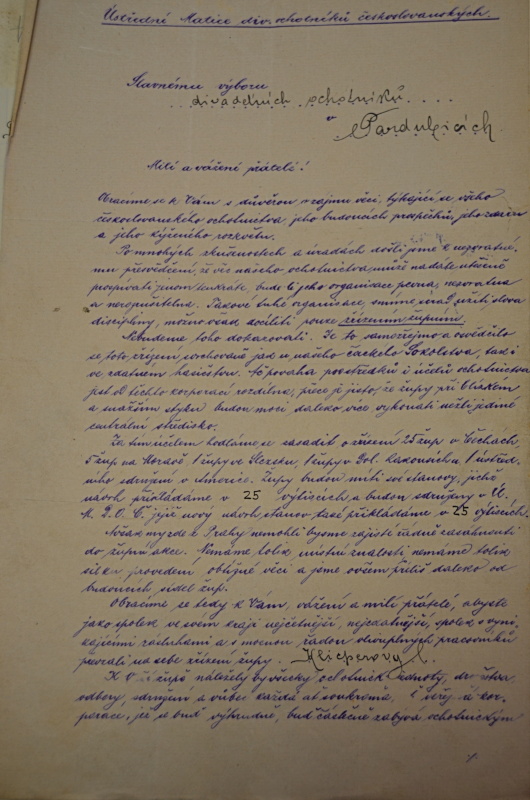 Ústřední Matice div. ochotníků českoslovanských.
Slavnému výboru
divadelních ochotníků
v
Pardubicích.
Milí a vážení přátelé!
Obracíme se k Vám s důvěrou v zájmu věci, týkající se všeho
českoslovanského ochotnictva, jeho budoucích prospěchů, jeho
a jeho kýženého rozkvětu.
Po mnohých zkušenostech a úradách došli jsme k nezvratné-
mu přesvědčení, že věc našeho ochotnictva může nadále utěšeně
prospívati jenom tenkráte, bude-li jeho organisace pevná,
a nerozpustitelna. Takové tuhé organisace, smíme-li užiti slova
disciplíny, možno však docíliti pouze zřízením župním.
Nebudeme toho dokazovati. Je to samozřejmo a osvědčilo
se toto zřízení svrchovaně jak u našeho českého Sokolstva, tak i
ve zdatném hasičstvu. Ač povaha prostředků i účelů ochotnictva
jest od těchto korporací rozdílna, přece je jisto, že župy při bližším
a snažším styku budou moci daleko více vykonati nežli jediné
centrální středisko.
Za tím účelem hodláme se zasaditi o zřízení 25 žup v Čechách,
5 žup na Moravě, 1 župy ve Slezsku, 1 župy v Dol. Rakousích a 1 ústřed-
ního sdružení v Americe. Župy budou míti své stanovy, jichž
návrh přikládáme v 25 výtiscích a budou sdruženy v Ú.
M. D. O. Č. jejíž nový návrh stanov také přikládáme v 25 výtiscích.
Avšak my zde z Prahy nemohli bysme zajisté řádně zasáhnouti
do župní akce. Nemáme tolik místní znalosti, nemáme tolik
sil ku provedení obtížné věci a jsme ovšem příliš daleko od
budoucích sídel žup.
Obracíme se tedy k Vám, vážení a milí přátelé, abyste
jako spolek ve svém kraji nejčetnější, nejzdatnější, spolek s vyni-
kajícími zásluhami a s mocnou řadou osvědčených pracovníků
převzali na se zřízení župy Klicperovy.
K Vaší župě náležely by všecky ochotnick. jednoty,
odbory, sdružení a vůbec každá ať soukromá, či veřejná kor-
porace, jež se buď výhradně, buď částečně zabývá ochotnickým